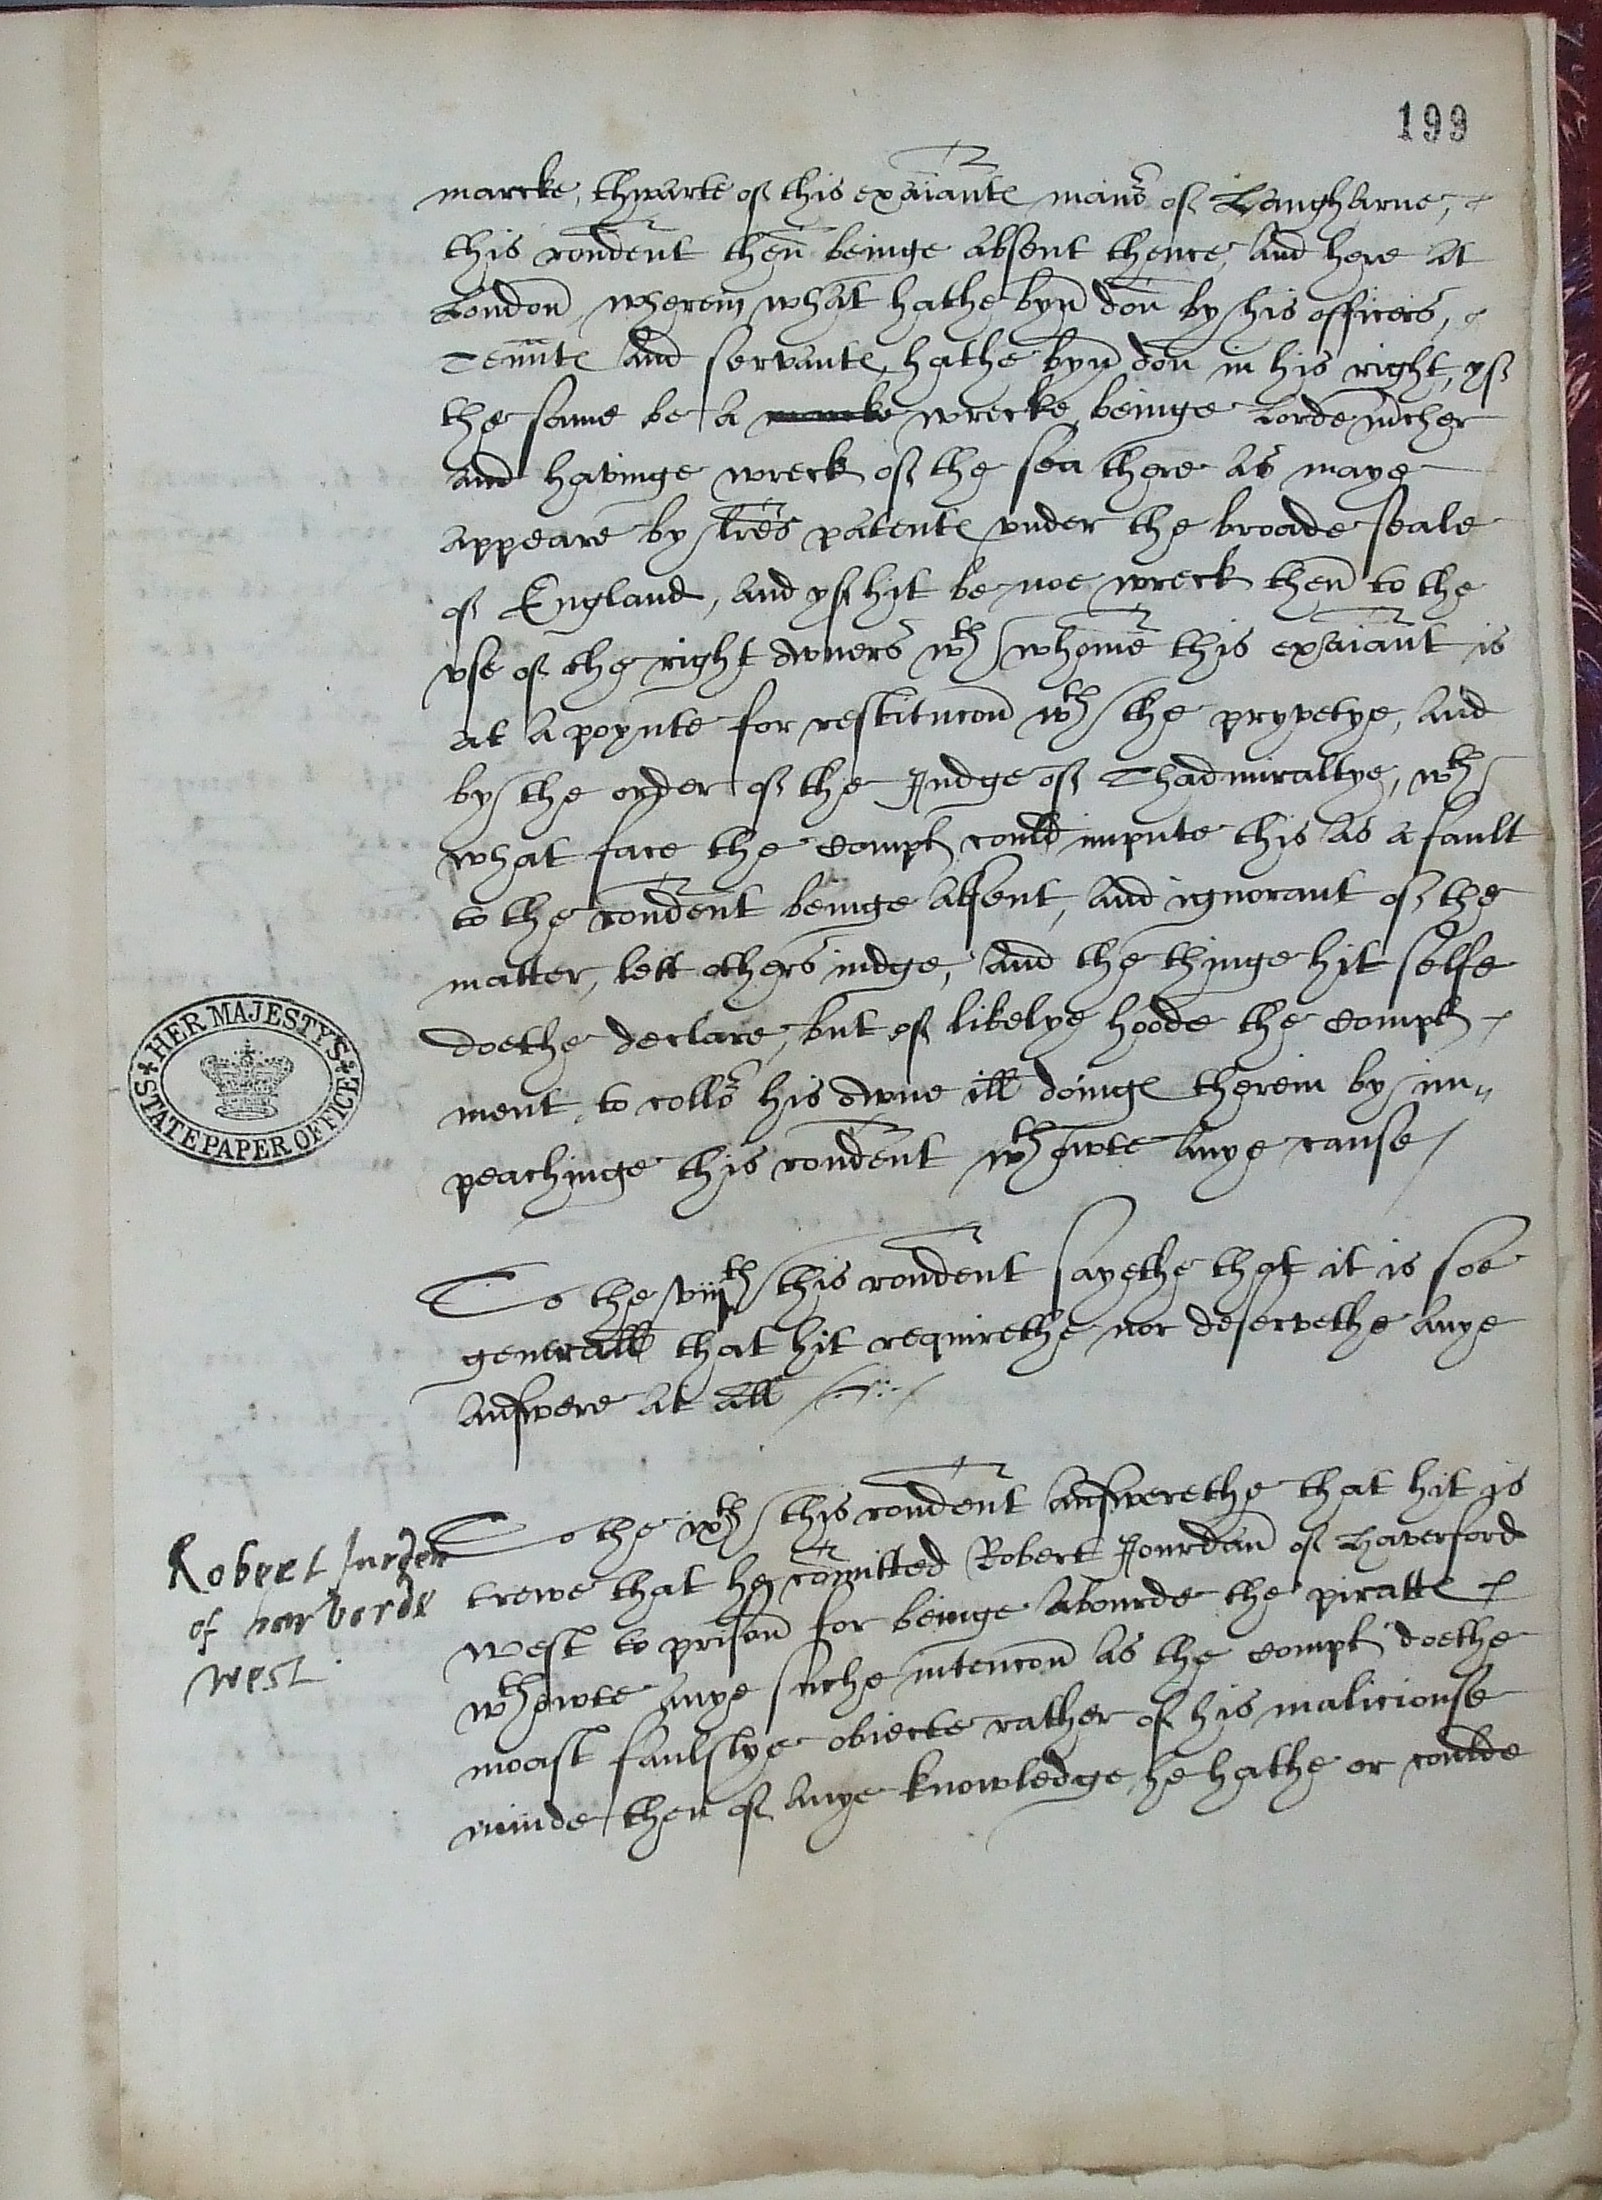 199
marcke, thwarte of this exa͠iante mano͠r of Langharne,
this rondent then beinge absent thence, And here at
London wherein what hathe byn don by his officers,
Tennte and servante, hathe byn don in his right, yf
the same be A wrecke, beinge Lorde mcher
And havinge wreck of the sea there As maye
Appeare by lres patente vnder the broade seale
of England, And yf hit be noe wreck then to the
vse of the right owners wth whome this exa͠iant is
At A poynte for restitucon wth the pryvetye, And
by the order of the Judge of Thadmiraltye, wth
what face the Compl could impute this As A fault
to the rondent beinge Absent, And ignorant of the
matter, lett others iudge, And the thinge hit selfe
doethe declare, but of likelye hoode the Compl
ment to collo͠r his owne ill doinge therein by im„
peachinge this rondent wthowte Anye cause /
HER MAJESTY'S
STATE PAPER OFFICE
To the viijth this rondent sayethe that it is soe
generall that hit requirethe nor deservethe Anye
Answere At All
To the ixth this rondent Answerethe that hit is
Robert Jurden
trewe that he comitted Robert Jourdan of Haverford
of harvorde
west to prison for beinge Abourde the piratte
west
wthowte Anye suche intencon As the Compl doethe
moast faulslye obiecte rather of his maliciouse
minde then of Anye knowledge he hathe or coulde